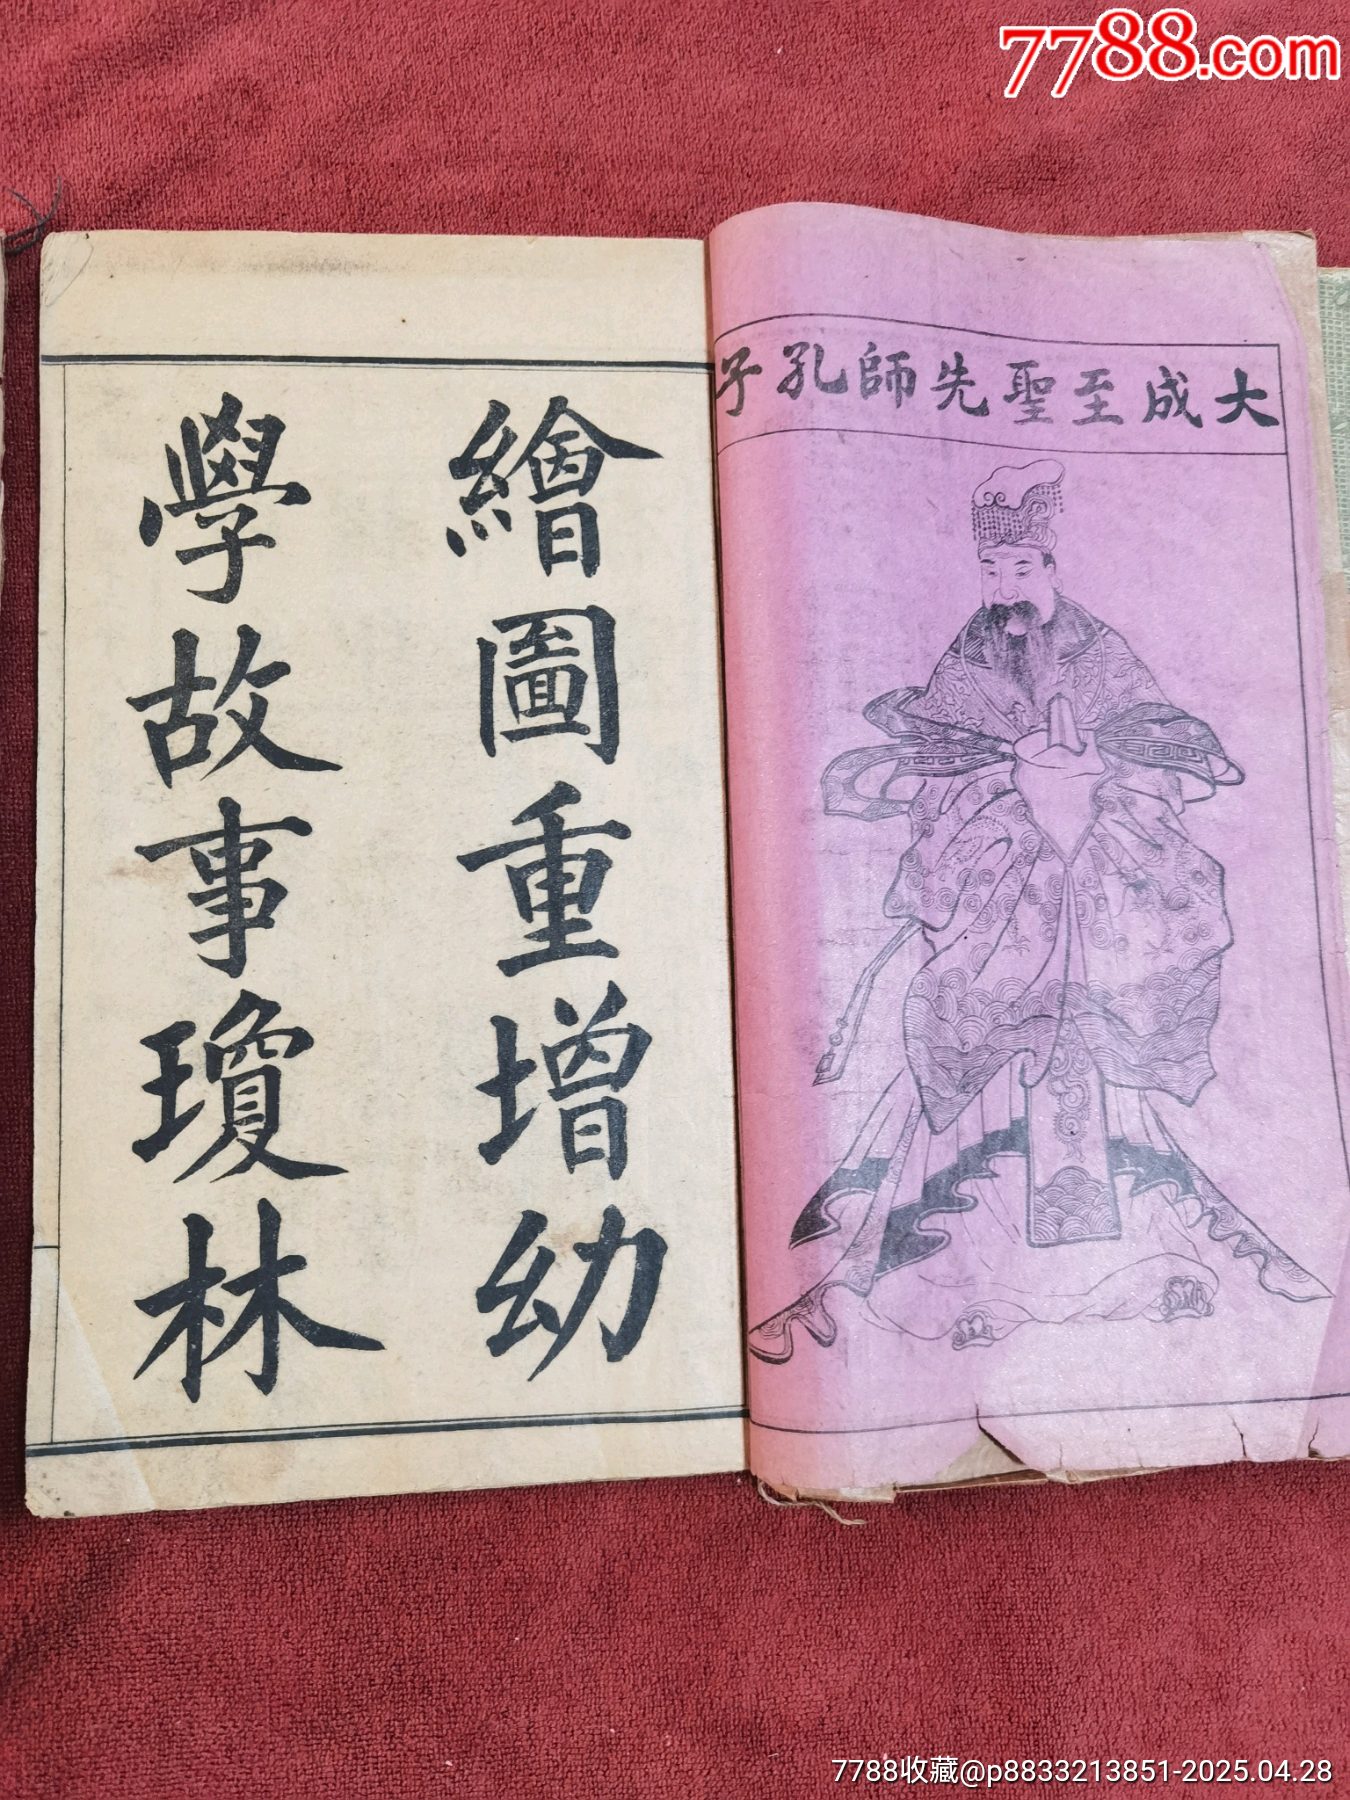 7788.com
大成至聖先師孔子
繪圖重增幼
學故事瓊林
7788收藏@p8833213851-2025.04.28